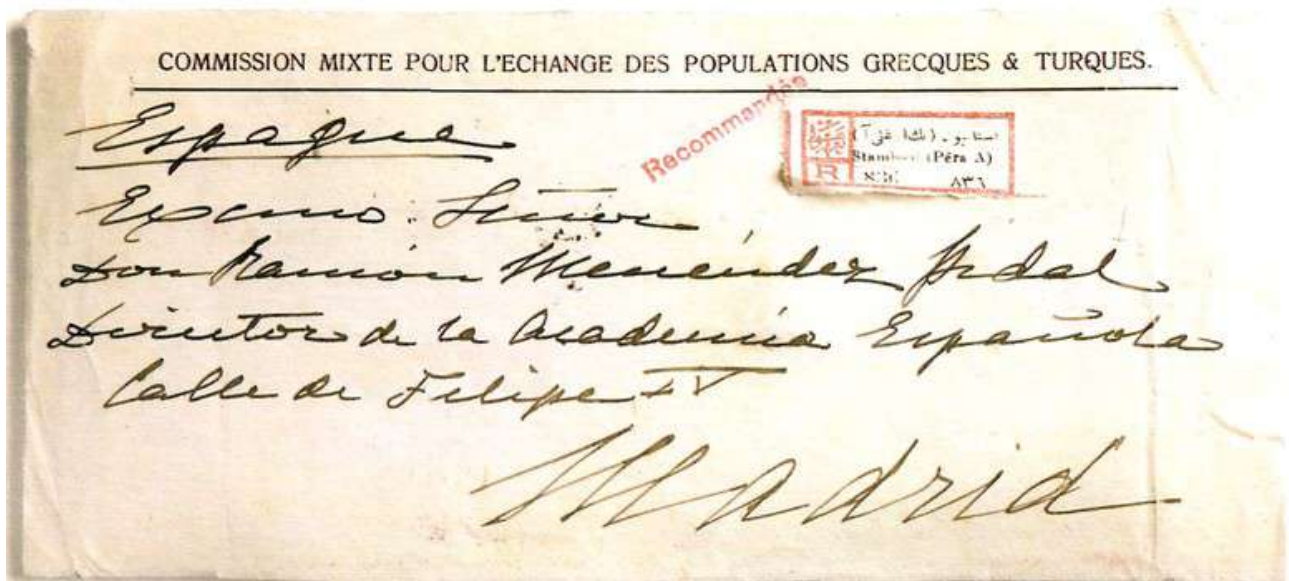 COMMISSION MIXTE POUR L'ECHANGE DES POPULATIONS GRECQUES & TURQUES.
Recommandés
Espagne
Stamboul (Péra A)
R
836 ٨٣٦
Excmo. Señor
Don Ramón Menéndez Pidal
Director de la Academia Española
Calle de Felipe IV
Madrid